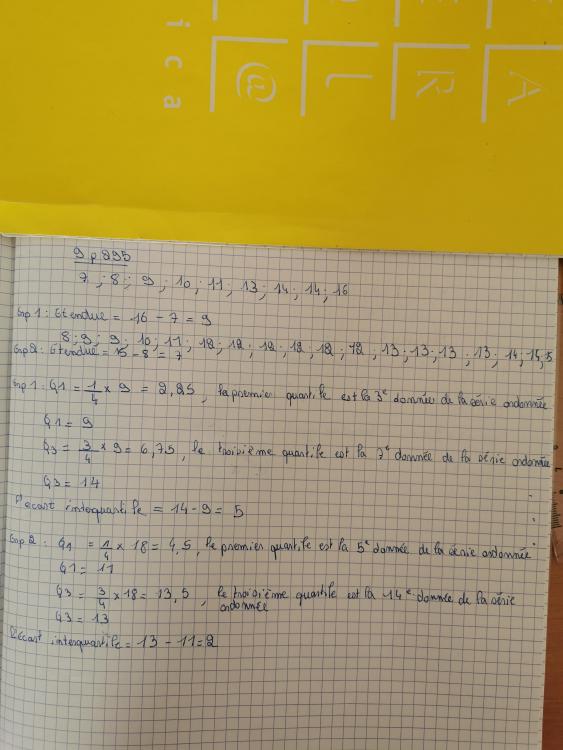 i c a
@ L R A
9 p 295
7 ; 8 ; 9 ; 10 ; 11 ; 13 ; 14 ; 14 ; 16
Grp 1 : Etendue = 16 - 7 = 9
8 ; 9 ; 9 ; 10 ; 11 ; 12 ; 12 ; 12 ; 12 ; 12 ; 12 ; 13 ; 13 ; 13 ; 13 ; 14 ; 14 ; 15
Grp 2 : Etendue = 15 - 8 = 7
Grp 1 : Q1 = 1/4 × 9 = 2,25 , le premier quartile est la 3e donnée de la série ordonnée
Q1 = 9
Q3 = 3/4 × 9 = 6,75 , le troisième quartile est la 7e donnée de la série ordonnée
Q3 = 14
l'écart interquartile = 14 - 9 = 5
Grp 2 : Q1 = 1/4 × 18 = 4,5 , le premier quartile est la 5e donnée de la série ordonnée
Q1 = 11
Q3 = 3/4 × 18 = 13,5 , le troisième quartile est la 14e donnée de la série
ordonnée
Q3 = 13
l'écart interquartile = 13 - 11 = 2